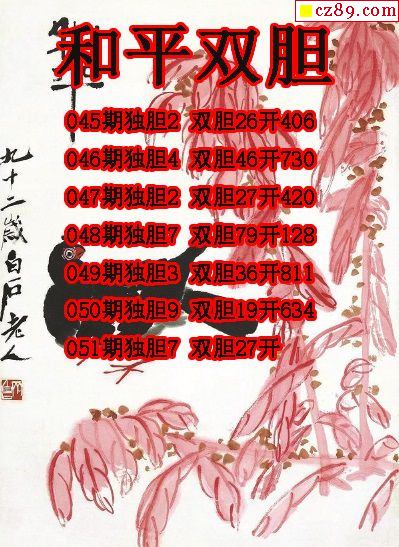 cz89.com
和平双胆
045期独胆2 双胆26开406
046期独胆4 双胆46开730
047期独胆2 双胆27开420
048期独胆7 双胆79开128
049期独胆3 双胆36开811
050期独胆9 双胆19开634
051期独胆7 双胆27开
九十二岁白石老人